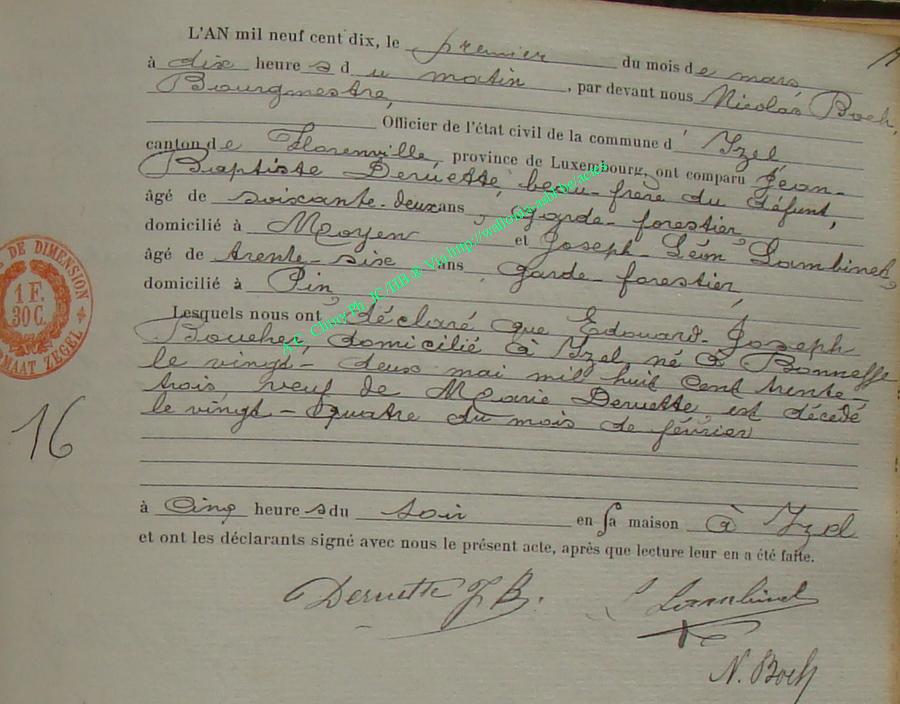 L'AN mil neuf cent dix, le premier du mois de mars
à dix heures du matin, par devant nous Nicolas Boch,
Bourgmestre,
Officier de l'état civil de la commune d'Izel,
canton de Florenville, province de Luxembourg, ont comparu Jean-
Baptiste Deruette, beau-frère du défunt,
âgé de soixante-deux ans, garde-forestier,
domicilié à Moyen et Joseph-Léon Lambinet,
âgé de trente-six ans, garde-forestier,
domicilié à Pin,
Lesquels nous ont déclaré que Edouard-Joseph
Bouchez, domicilié à Izel né à Bonneffe
le vingt-deux mai mil huit cent trente-
trois veuf de Marie Deruette, est décédé
le vingt-quatre du mois de février
à cinq heures du soir en sa maison à Izel
et ont les déclarants signé avec nous le présent acte, après que lecture leur en a été faite.
Deruette J B. L Lambinet
N. Boch
16
DE DIMENSION
1 F.
30 C.
FORMAAT ZEGEL